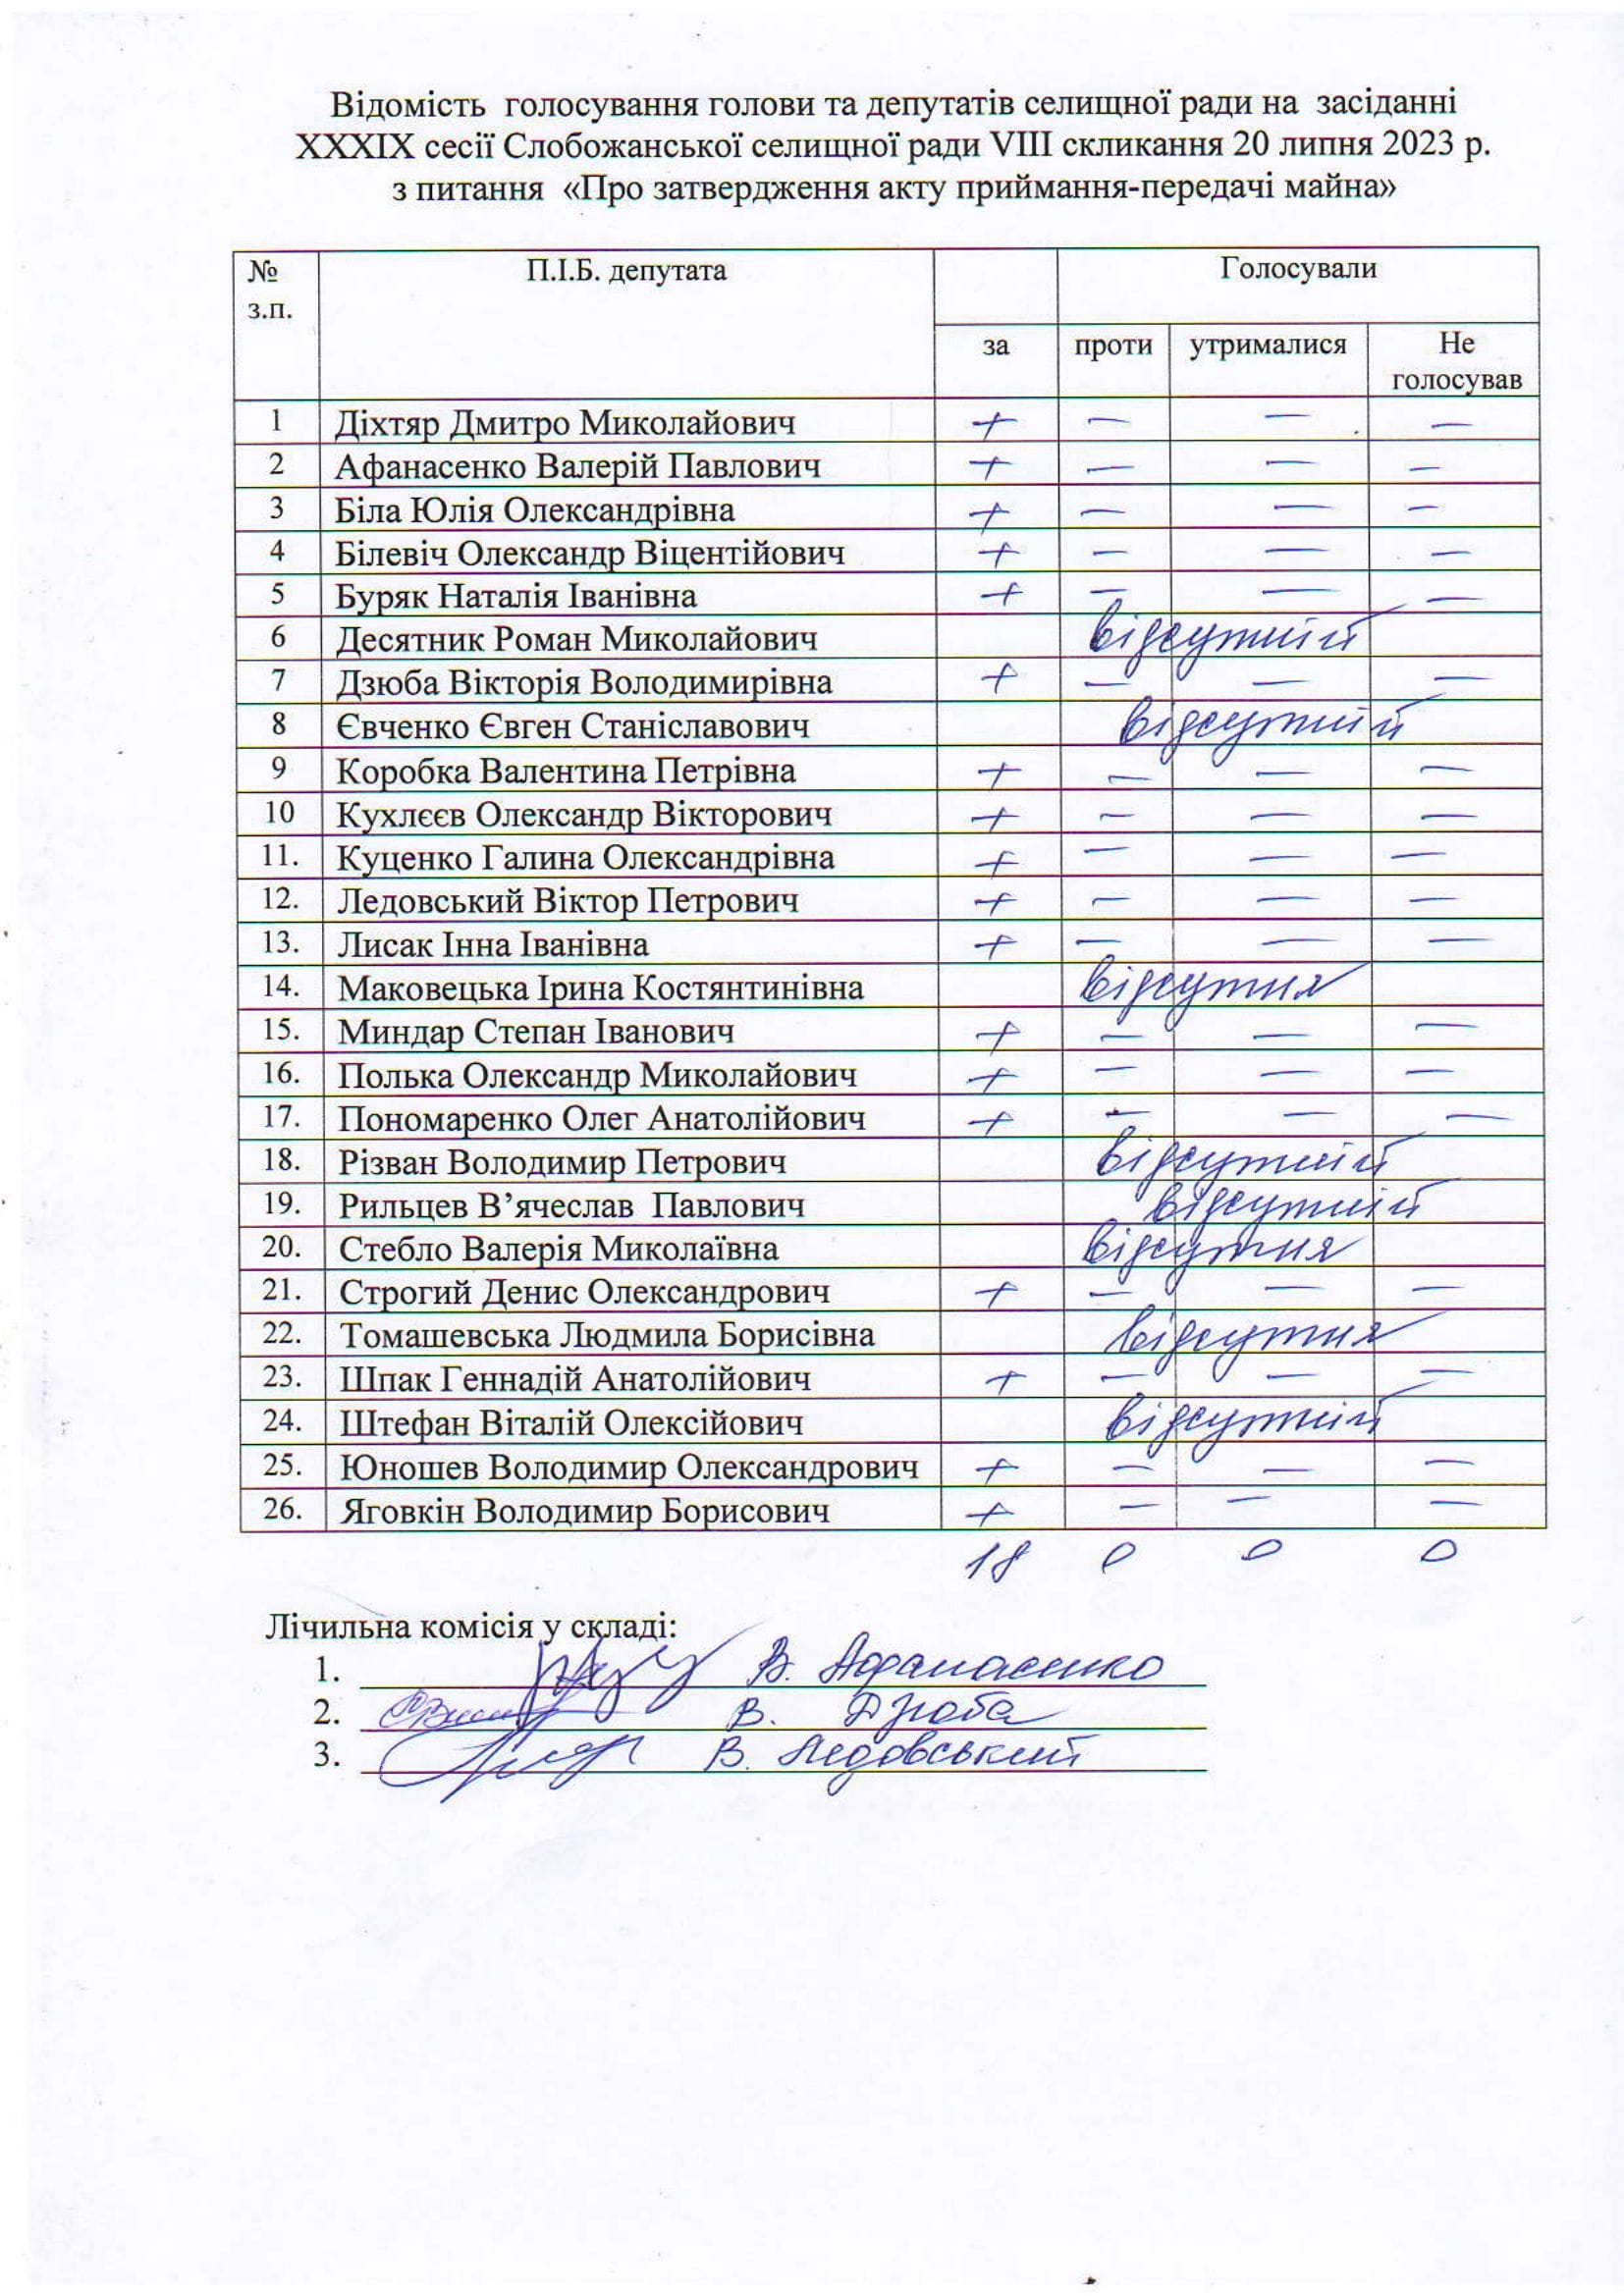 Відомість голосування голови та депутатів селищної ради на засіданні
XXXIX сесії Слобожанської селищної ради VIII скликання 20 липня 2023 р.
з питання «Про затвердження акту приймання-передачі майна»
№ з.п. П.І.Б. депутата Голосували
за проти утрималися Не голосував
1 Діхтяр Дмитро Миколайович + — — —
2 Афанасенко Валерій Павлович + — — —
3 Біла Юлія Олександрівна + — — —
4 Білевіч Олександр Віцентійович + — — —
5 Буряк Наталія Іванівна + — — —
6 Десятник Роман Миколайович відсутній
7 Дзюба Вікторія Володимирівна + — — —
8 Євченко Євген Станіславович відсутній
9 Коробка Валентина Петрівна + — — —
10 Кухлєєв Олександр Вікторович + — — —
11. Куценко Галина Олександрівна + — — —
12. Ледовський Віктор Петрович + — — —
13. Лисак Інна Іванівна + — — —
14. Маковецька Ірина Костянтинівна відсутня
15. Миндар Степан Іванович + — — —
16. Полька Олександр Миколайович + — — —
17. Пономаренко Олег Анатолійович + — — —
18. Різван Володимир Петрович відсутній
19. Рильцев В’ячеслав Павлович відсутній
20. Стебло Валерія Миколаївна відсутня
21. Строгий Денис Олександрович + — — —
22. Томашевська Людмила Борисівна відсутня
23. Шпак Геннадій Анатолійович + — — —
24. Штефан Віталій Олексійович відсутній
25. Юношев Володимир Олександрович + — — —
26. Яговкін Володимир Борисович + — — —
18 0 0 0
Лічильна комісія у складі:
1. В. Афанасенко
2. В. Дзюба
3. В. Ледовський